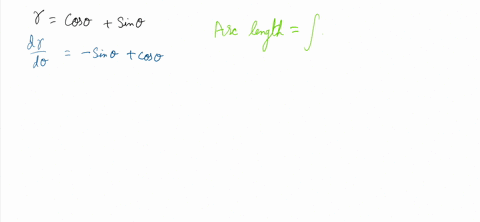 r = cosθ + sinθ
dr/dθ = -sinθ + cosθ
Arc length = ∫